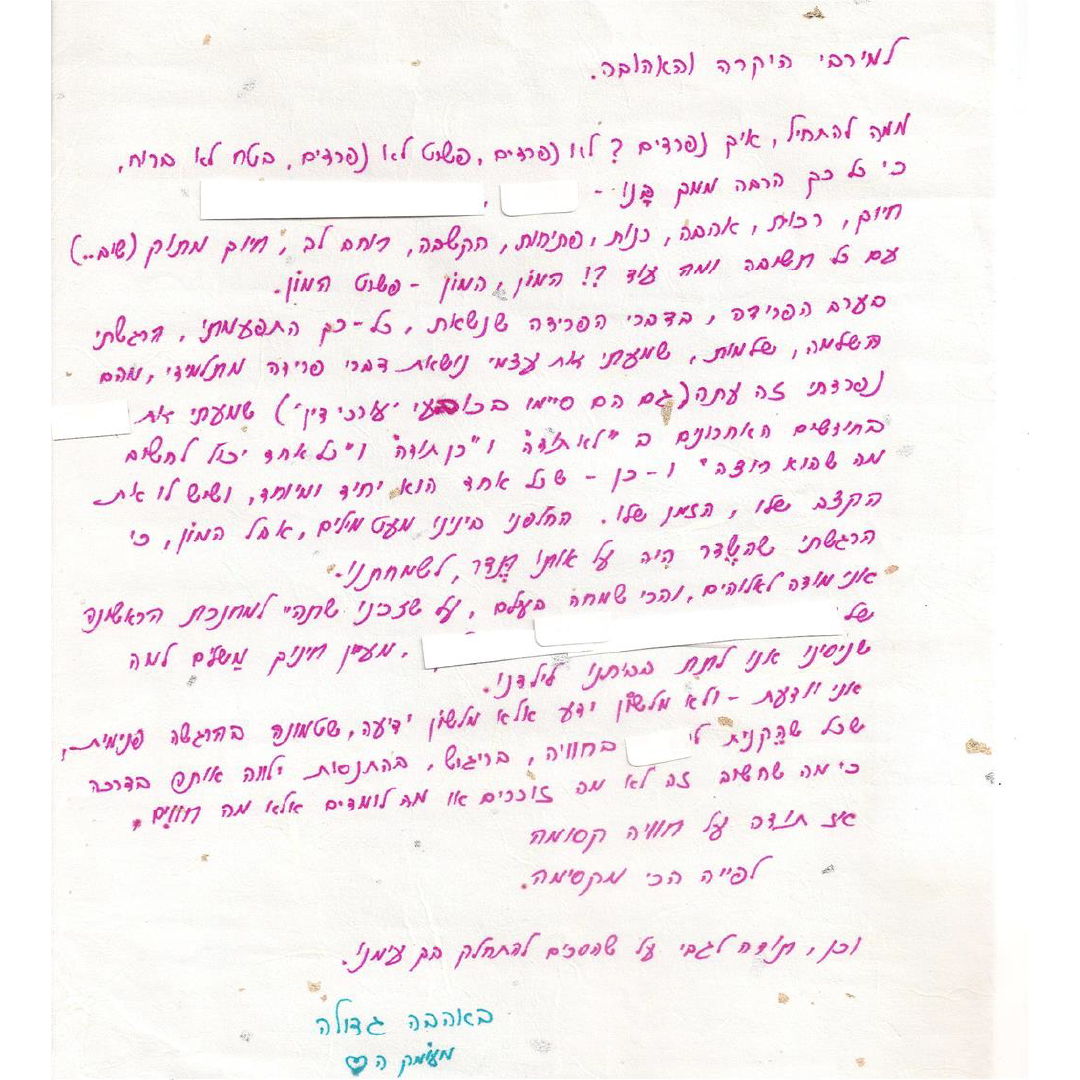 למירבי היקרה והאהובה.
ממה להתחיל, איך נפרדים? לא נפרדים, פשוט לא נפרדים, בטח לא ברוח,
כי כל כך הרבה ממך בָּנוּ - ,
חיוך, רכות, אהבה, כנות, פתיחות, הקשבה, רוחב לב, חיוך מתוק (שוב..)
עם כל תשובה ומה עוד ?! המון, המון - פשוט המון.
בערב הפרידה, בדברי הפרידה שנשאת, כל-כך התפעמתי, הרגשתי
השלמה, שלמות, שמעתי את עצמי נושאת דברי פרידה מתלמידי, מהם
נפרדתי זה עתה (גם הם סיימו בכובעי "עורכי דין") שמעתי את
בחודשים האחרונים ב "לא תודה" ו"כן תודה" ו"כל אחד יכול לחשוב
מה שהוא רוצה" ו-כן - שכל אחד הוא יחיד ומיוחד, ושיש לו את
הקצב שלו, הזמן שלו. החלפנו בינינו מעט מילים, אבל המון, כי
הרגשתי שהשֶׁדר היה על אותו תֶּדר, לשמחתנו.
אני מודה לאלוהים, והכי שמחה בעולם, על שזכינו שתהיי למחנכת הראשונה
של , מעין חינוך מַשלים למה
שניסינו אנו לתת בביתנו לילדנו.
אני יודעת - ולא מלשון ידע אלא מלשון ידיעה, שטמונה בהרגשה פנימית,
שכל שהִקנית לי בחוויה, בריגוש, בהתנסות ילווה אותם בדרכה
כי מה שחשוב זה לא מה זוכרים או מה לומדים אלא מה חווים.
אז תודה על חוויה קסומה
לפייה הכי מקסימה.
וכן, תודה לגבי על שהסכים להתחלק בך עימנו.
באהבה גדולה
מעומק ה♡